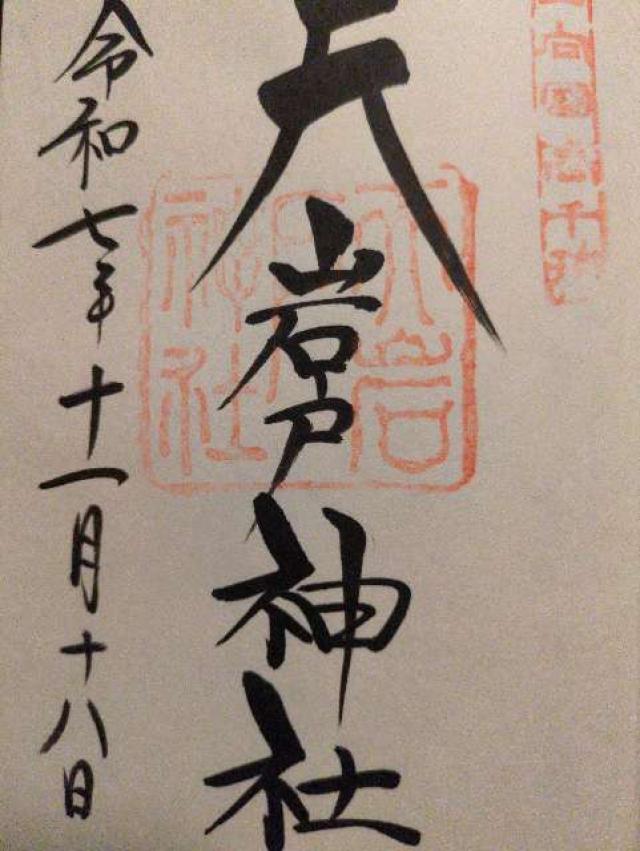 向国高千穂
天岩戸神社
天岩戸
神社
令和七年十一月十八日